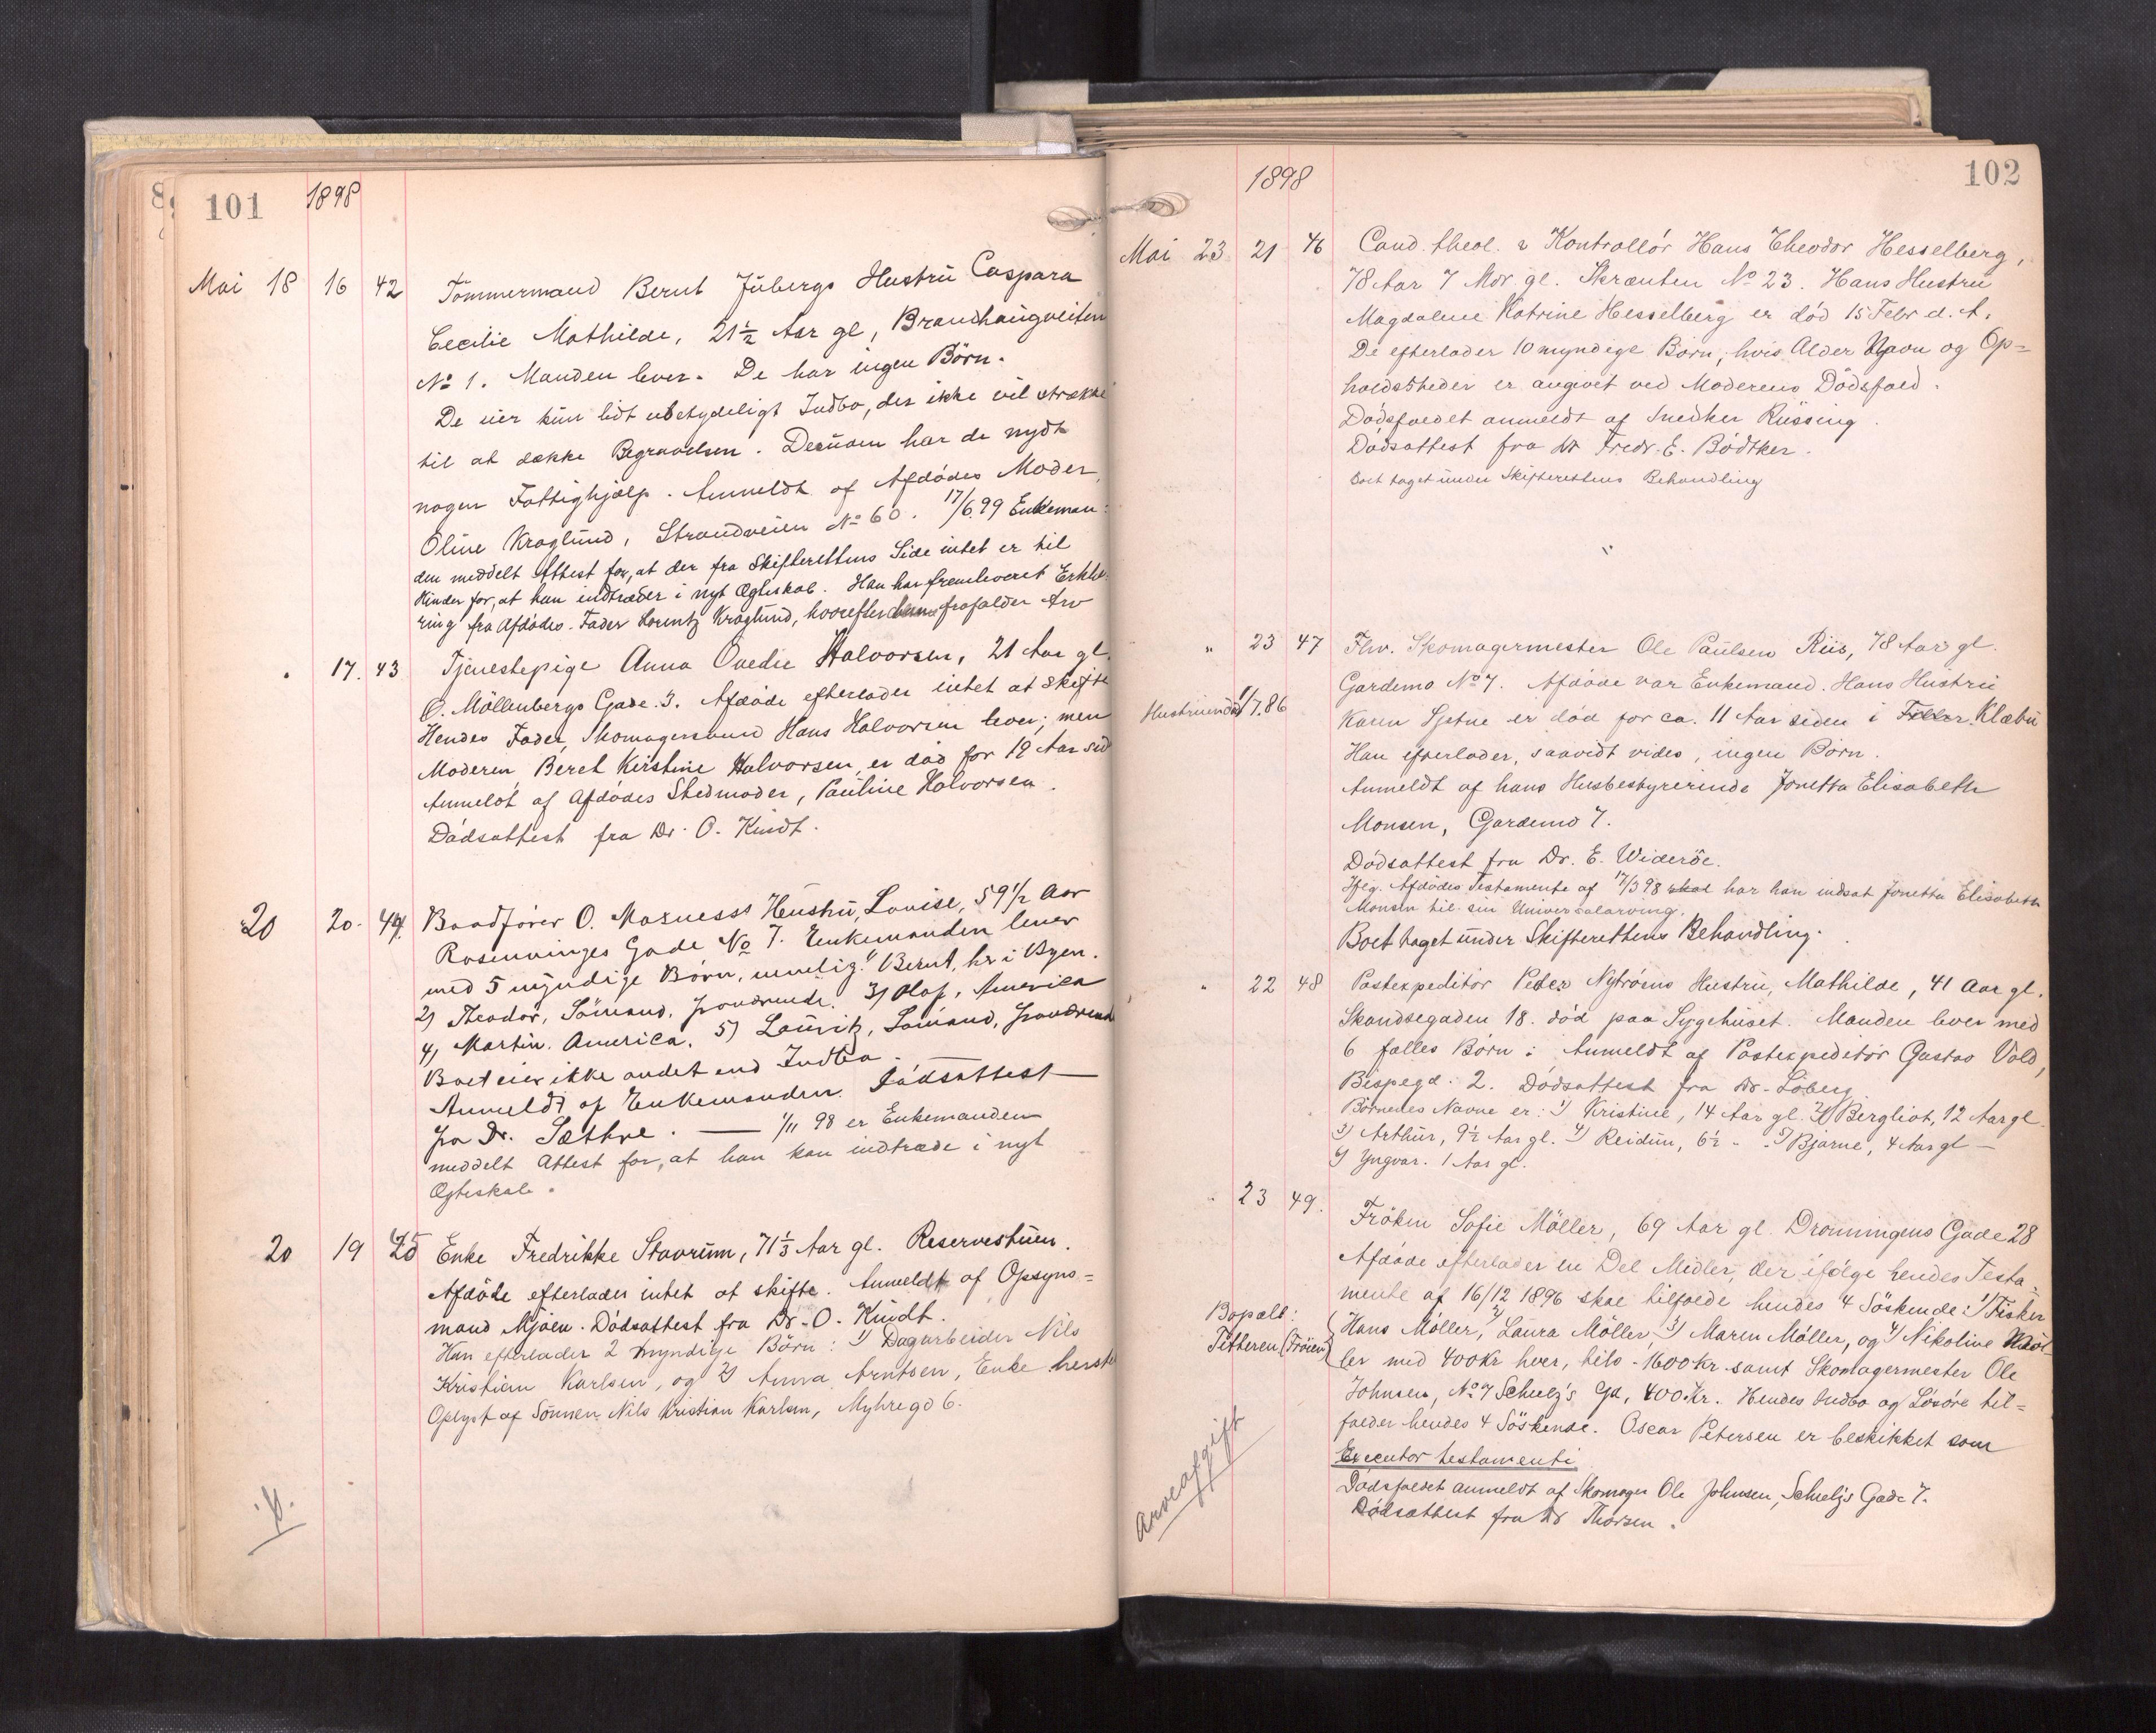 101 1898
Mai 18 16 42 Tømmermand Bernt Jubergs Hustru Caspara
Cecilie Mathilde, 21½ Aar gl, Brandhaugveiten
No 1. Manden lever. De har ingen Børn.
De eier kun lidt ubetydeligt Indbo, der ikke vil strække
til at dække Begravelsen. Desuden har de nydt
nogen Fattighjælp. Anmeldt af Afdødes Moder,
Oline Kraglund, Strandveien No 60. 17/6.99 Enkeman=
den meddelt Attest for, at der fra Skifterettens Side intet er til
Hinder for, at han indtræder i nyt Ægteskab. Han har fremleveret Erklæ=
ring fra Afdødes Fader Lorentz Kraglund, hvorefter frafalder Arv
" 17. 43 Tjenestepige Anna Ovedie Halvorsen, 21 Aar gl.
O. Möllenbergs Gade 3. Afdøde efterlader intet at skifte
Hendes Fader, Skomagersvend Hans Halvorsen lever; men
Moderen Beret Kirstine Halvorsen er død for 19 Aar sid
Anmeldt af Afdødes Stedmoder, Pauline Halvorsen.
Dødsattest fra Dr. O. Kindt.
20 20. 44. Baadfører O. Maxness' Hustru, Louise, 59½ Aar
Rosenvinges Gade No 7. Enkemanden lever
med 5 myndige Børn, nemlig: 1) Bernt, her i Byen.
2) Theodor, Sømand, fraværende. 3) Olaf, America
4) Martin. America. 5) Lauritz, Sømand, fraværende
Boet eier ikke andet end Indbo. —
Anmeldt af Enkemanden. Dødsattest
fra Dr. Sæthre. — 1/11 98 er Enkemanden
meddelt Attest for, at han kan indtræde i nyt
Ægteskab.
20 19 45 Enke Fredrikke Stavrum, 71⅓ Aar gl. Reservestuen.
Afdøde efterlader intet at skifte. Anmeldt af Opsyns=
mand Mjøen. Dødsattest fra Dr. O. Kindt.
Hun efterlader 2 myndige Børn: 1) Dagarbeider Nils
Kristian Karlsen, og 2) Anna Arntsen, Enke herste
Oplyst af Sønnen Nils Kristian Karlsen, Myhregd 6.
102
1898
Mai 23 21 46 Cand. theol. & Kontrollør Hans Theodor Hesselberg,
78 Aar 7 Mdr. gl. Skrænten No 23. Hans Hustru
Magdalene Katrine Hesselberg er død 15 Febr d. A.
De efterlader 10 myndige Børn, hvis Alder Navn og Op=
holdssteder er angivet ved Moderens Dødsfald.
Dødsfaldet anmeldt af Snedker Rüssing.
Dødsattest fra Dr Fredr. E. Bödtker.
Boet taget under Skifterettens Behandling
" 23 47 Fhv. Skomagermester Ole Paulsen Riis, 78 Aar gl.
Gardemo No 7. Afdøde var Enkemand. Hans Hustru
Hustruen død 1/7.86
Karen Sjetne er død for ca. 11 Aar siden i Tiller. Klæbu
Han efterlader, saavidt vides, ingen Børn.
Anmeldt af hans Husbestyrerinde Jonetta Elisabeth
Monsen, Gardemo 7.
Dødsattest fra Dr. E. Widerøe.
Iflg. Afdødes Testamente af 17/3 98 skal har han indsat Jonetta Elisabeth
Monsen til sin Universalarving.
Boet taget under Skifterettens Behandling.
" 22 48 Postexpeditør Peter Nytrøens Hustru, Mathilde, 41 Aar gl.
Skandsegaden 18. død paa Sygehuset. Manden lever med
6 fælles Børn: Anmeldt af Postexpeditør Gustav Vold,
Bispegd. 2. Dødsattest fra Dr. Löberg
Børnenes Navne er: 1) Kristine, 14 Aar gl. 2) Bergliot, 12 Aar gl.
3) Arthur, 9½ Aar gl. 4) Reidun, 6½ " " 5) Bjarne, 4 Aar gl —
6) Yngvar. 1 Aar gl.
" 23 49. Frøken Sofie Möller, 69 Aar gl. Dronningens Gade 28
Afdøde efterlader en Del Midler, der ifølge hendes Testa=
mente af 16/12 1896 skal tilfalde hendes 4 Søskende: 1) Fisker
Bopæl: Titteren (Frøien)
Hans Möller, 2) Laura Möller, 3) Maren Möller, og 4) Nikoline Möl=
ler med 400 Kr hver, tils. 1600 Kr. samt Skomagermester Ole
Johnsen, No 7 Schulz's Gd, 400 Kr. Hendes Indbo og Løsøre til=
falder hendes 4 Søskende. Oscar Petersen er beskikket som
Executor testamenti
Arveafgift
Dødsfaldet anmeldt af Skomager Ole Johnsen, Schulz's Gade 7.
Dødsattest fra Dr Thorsen.